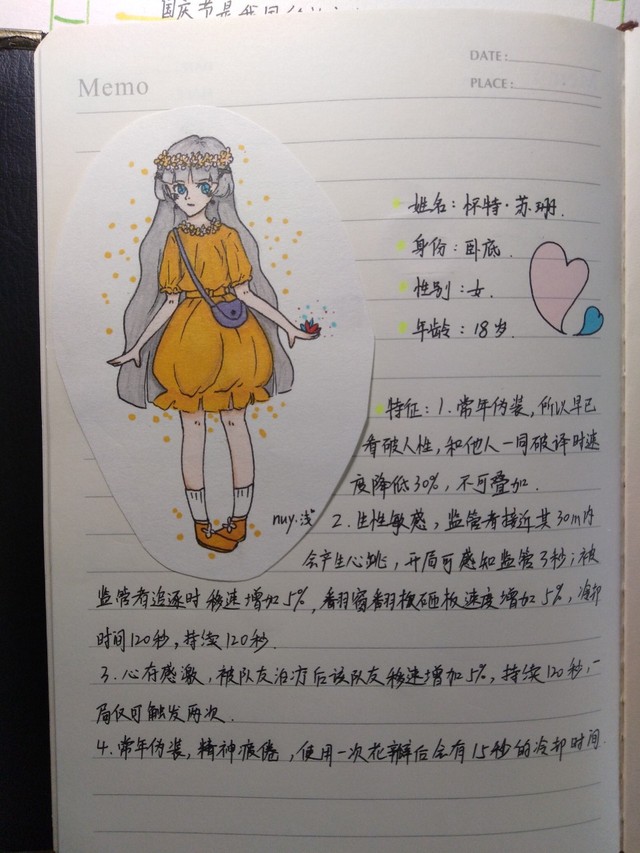 国庆节是我国
Memo
DATE:
PLACE:
姓名：怀特·苏珊.
身份：卧底.
性别：女.
年龄：18岁.
特征：1.常年伪装，所以早已
看破人性，和他人一同破译时速
度降低30%，不可叠加.
nuy.浅
2.生性敏感，监管者接近其30m内
会产生心跳，开局可感知监管3秒；被
监管者追逐时移速增加5%，翻窗翻板砸板速度增加5%，冷却
时间120秒，持续120秒.
3.心存感激，被队友治疗后该队友移速增加5%，持续120秒，一
局仅可触发两次.
4.常年伪装，精神疲倦，使用一次花瓣后会有15秒的冷却时间.